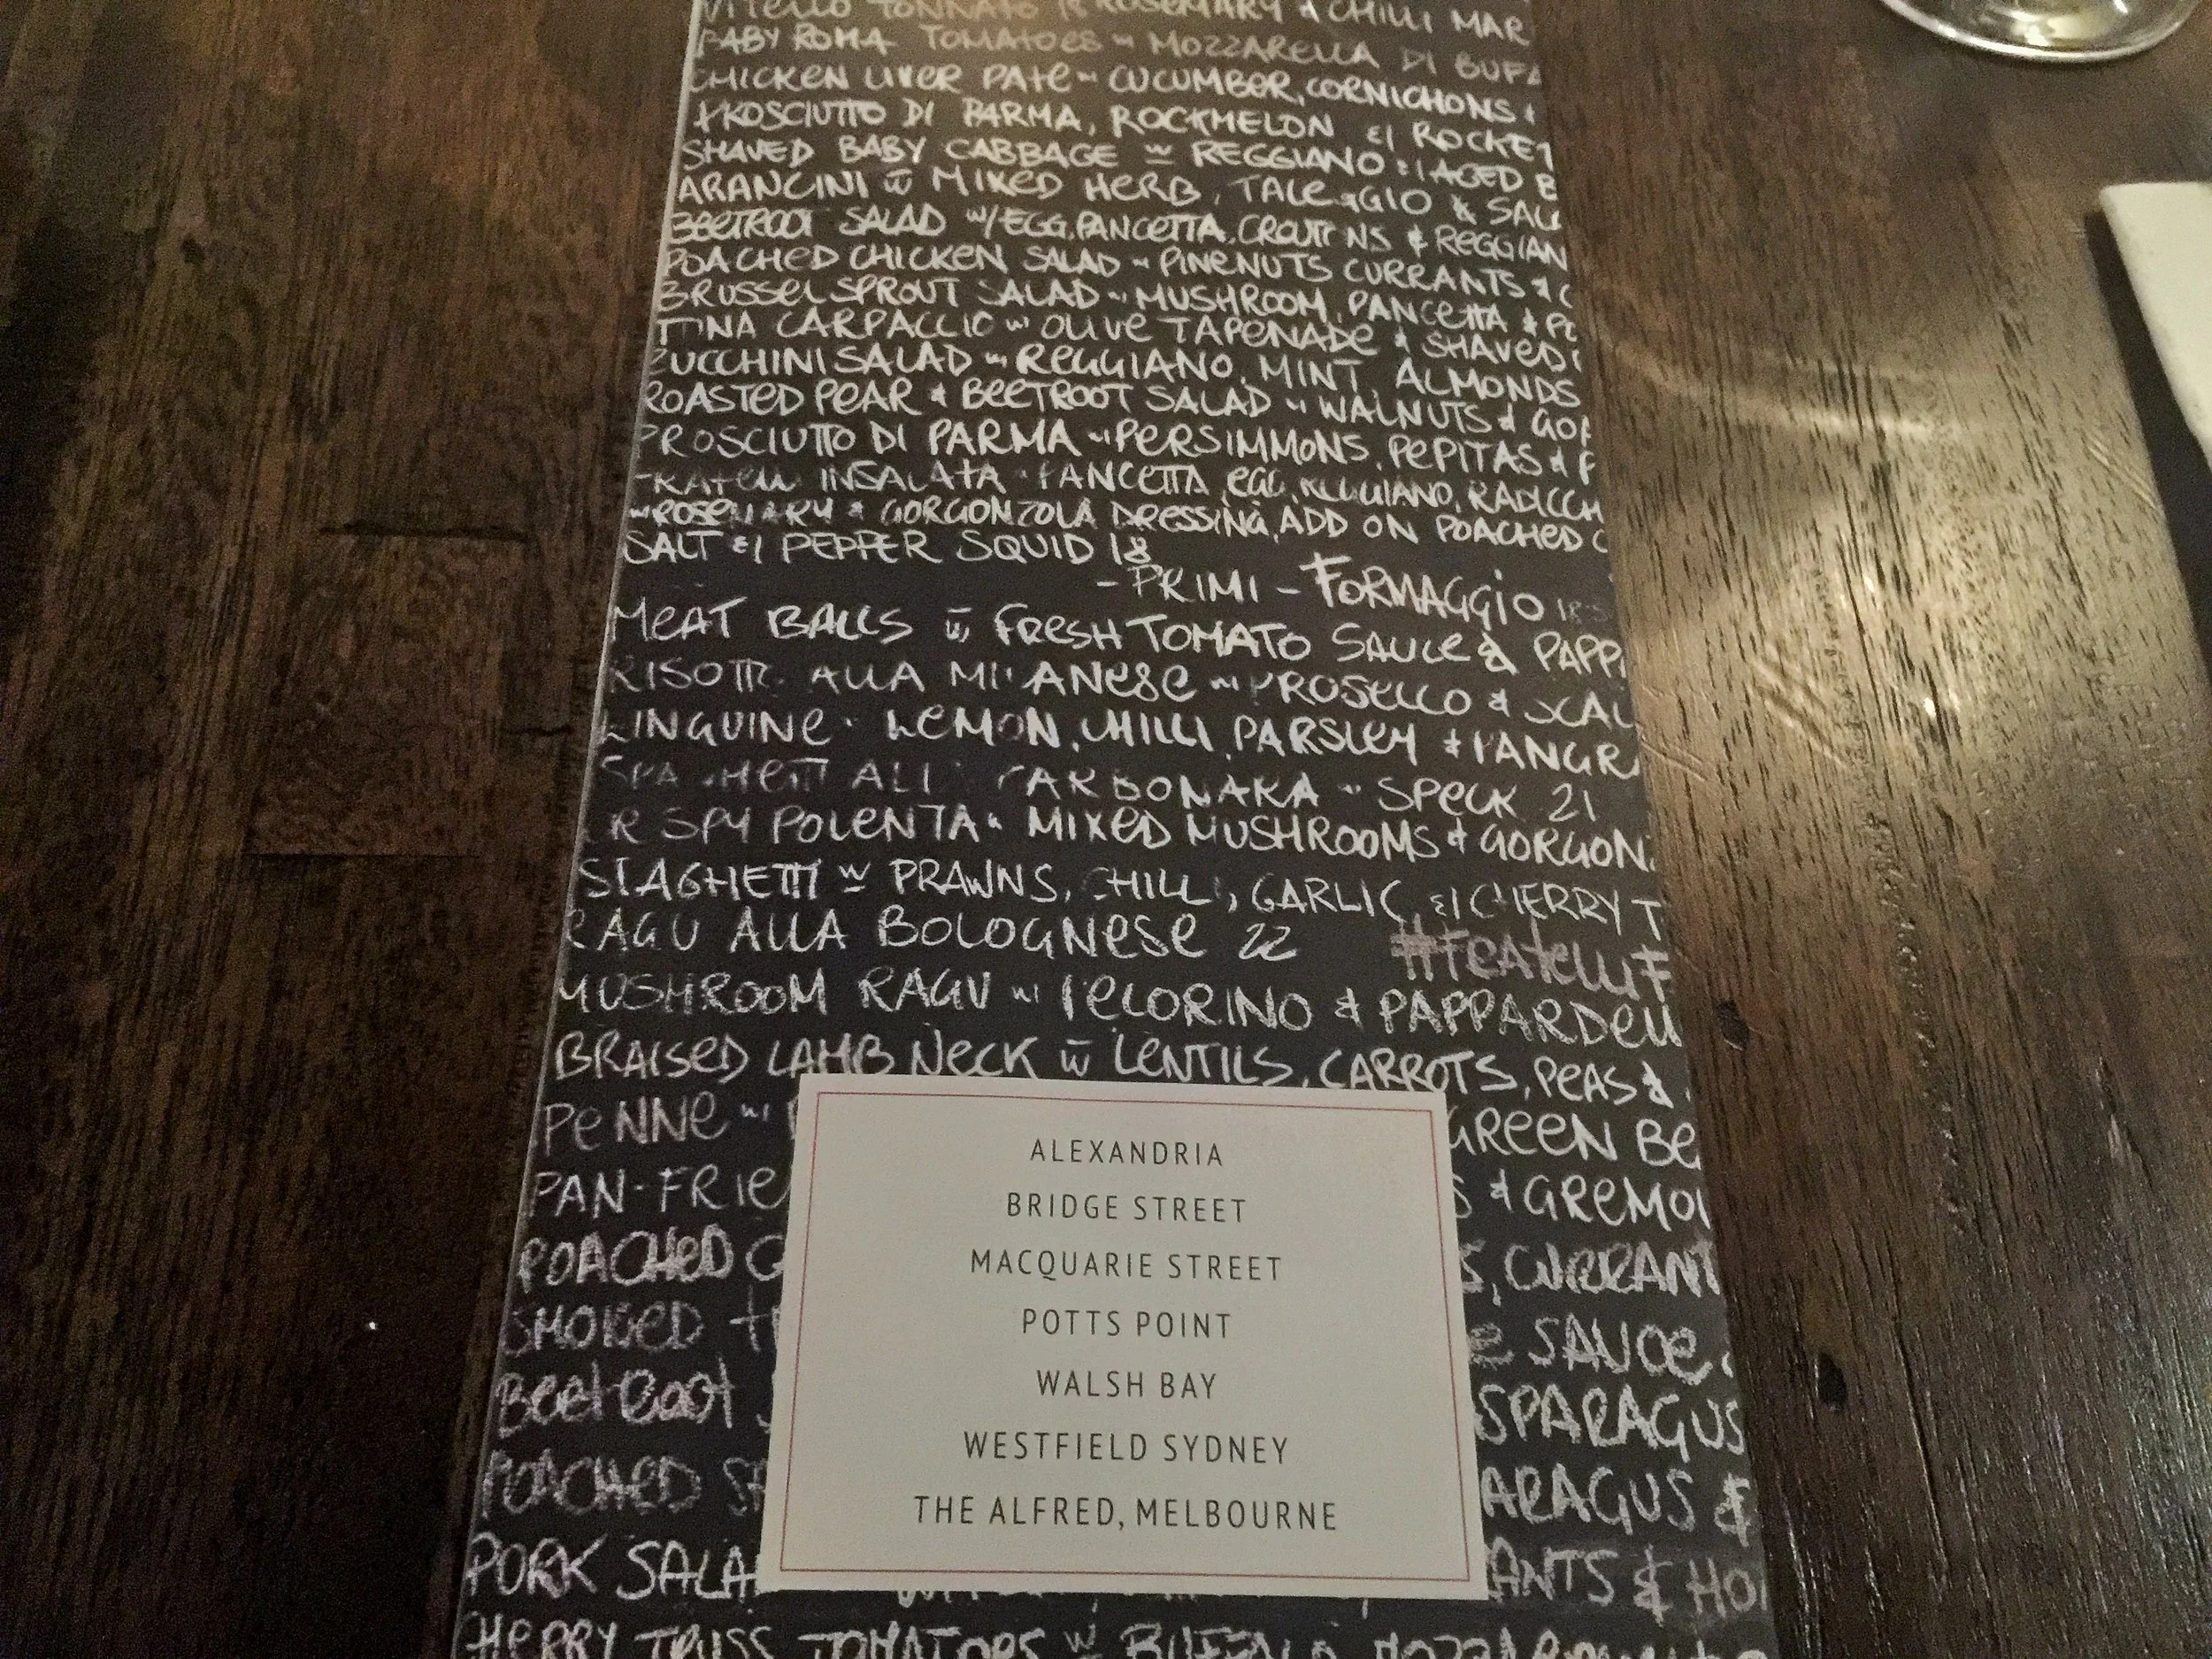 VITELLO TONNATO ROSEMARY & CHILLI MAR
BABY ROMA TOMATOES w MOZZARELLA DI BUFA
CHICKEN LIVER PATE w CUCUMBER, CORNICHONS &
PROSCIUTTO DI PARMA, ROCKMELON & ROCKET
SHAVED BABY CABBAGE w REGGIANO & AGED B
ARANCINI w MIXED HERB, TALEGGIO & SAL
BEETROOT SALAD w/ EGG, PANCETTA, CROUTONS & REGGIAN
POACHED CHICKEN SALAD w PINENUTS CURRANTS & C
BRUSSEL SPROUT SALAD w MUSHROOM, PANCETTA & PE
TUNA CARPACCIO w OLIVE TAPENADE & SHAVED
ZUCCHINI SALAD w REGGIANO, MINT, ALMONDS
ROASTED PEAR & BEETROOT SALAD w WALNUTS & GOR
PROSCIUTTO DI PARMA w PERSIMMONS, PEPITAS & F
FRATELLI INSALATA PANCETTA, EGG, REGGIANO, RADICCH
w ROSEMARY & GORGONZOLA DRESSING, ADD ON POACHED C
SALT & PEPPER SQUID 18
- PRIMI - FORMAGGIO
MEAT BALLS w FRESH TOMATO SAUCE & PAPP
RISOTTO ALLA MILANESE w PROSECCO & SCAL
LINGUINE LEMON, CHILLI, PARSLEY & PANGR
SPAGHETTI ALLA CARBONARA w SPECK 21
CRISPY POLENTA w MIXED MUSHROOMS & GORGON
SPAGHETTI w PRAWNS, CHILLI, GARLIC, & CHERRY T
RAGU ALLA BOLOGNESE 22 #FRATELLIF
MUSHROOM RAGU w PECORINO & PAPPARDELL
BRAISED LAMB NECK w LENTILS, CARROTS, PEAS &
PENNE w GREEN BE
PAN-FRIE & GREMOL
POACHED C S, CURRANT
SMOKED SAUCE.
BEETROOT SPARAGUS
POACHED ARAGUS &
PORK SALA ANTS & HO
CHERRY TRUSS TOMATOES w BUFFALO MOZZAR
ALEXANDRIA
BRIDGE STREET
MACQUARIE STREET
POTTS POINT
WALSH BAY
WESTFIELD SYDNEY
THE ALFRED, MELBOURNE